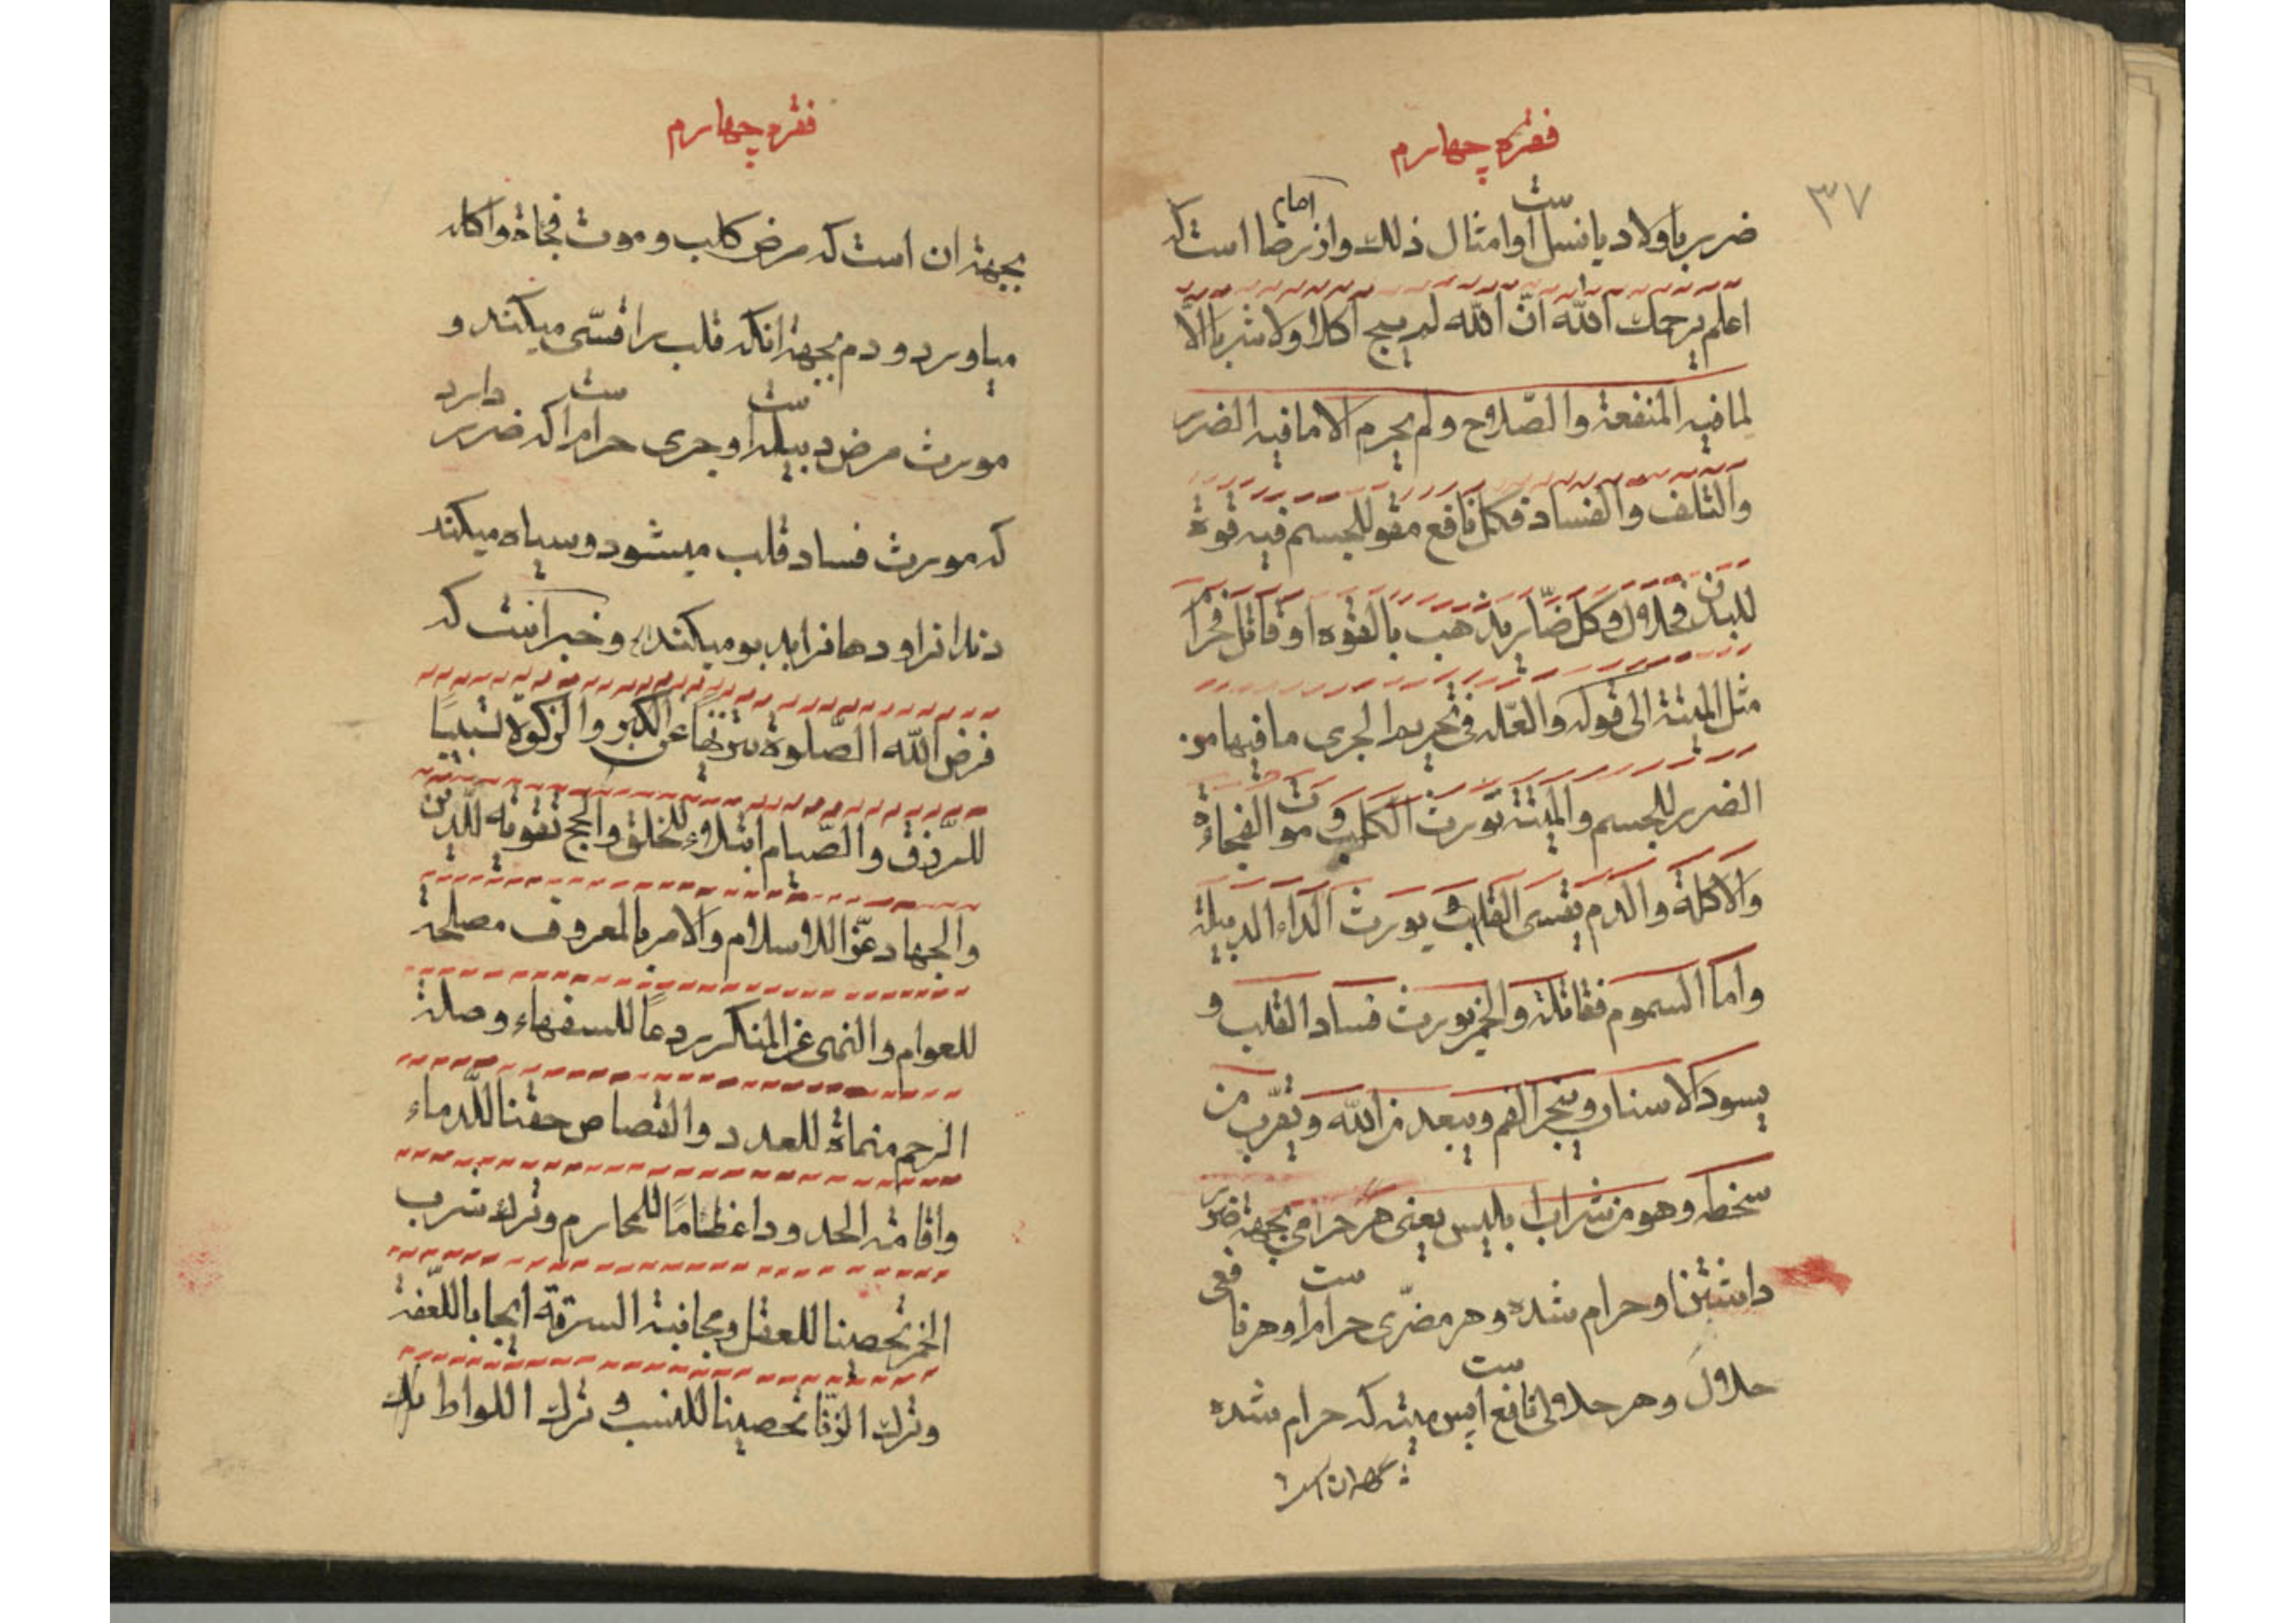 ۳۷
فقره چهارم
ضرر باولاد یا نسل است و امثال ذلك و از امام رضا است که
اعلم یرحمك الله انّ الله لم یبح اکلا ولا شربا الّا
لما فیه المنفعة والصّلاح ولم یحرم الا ما فیه الضرر
والتلف والفساد فکل نافع مقو للجسم فیه قوة
للبدن فحلال و کل ضّار یذهب بالقوه او قاتل فحرام
مثل المیتة الی قوله والعّله فی تحریم الجری ما فیها من
الضرر للجسم والمیتة تورث الکلب و موت الفجاءة
والاکلة والدم یقسی القلب و یورث الداء الدبیلة
واما السموم فقاتلة والخمر تورث فساد القلب و
یسود الاسنان و یبخر الفم و یبعد من الله و یقرّب من
سخطه و هو من شراب ابلیس یعنی هر حرامی بجهة ضرر
داشتن او حرام شده و هر مضرّی حرام است و هر نافعی
حلال و هر حلالی نافع است پس میته که حرام شده
فقره چهارم
بجهة ان است که مرض کلب و موت فجاة و اکله
میاورد و دم بجهة انکه قلب را قسّی میکند و
مورث مرض دبیله است و جری حرام است که ضرر دارد
که مورث فساد قلب میشود و سیاه میکند
دندانرا و دهانرا بدبو میکند و خبر است که
فرض الله الصّلوة تنزیها عن الکبر والزکوة تسبیبًا
للرّزق والصّیام ابتلاء للخلق والحج تقویه للّدین
والجهاد عزّا للاسلام والامر بالمعروف مصلحة
للعوام والنهی عن المنکر ردعًا للسفهاء وصلة
الرحم منماة للعدد والقصاص حقنا للّدماء
واقامة الحدود اعظامًا للمحارم وترك شرب
الخمر تحصینا للعقل و مجانبة السرقة ایجابا للعّفة
وترك الزنا تحصینا للنسب و ترك اللواط